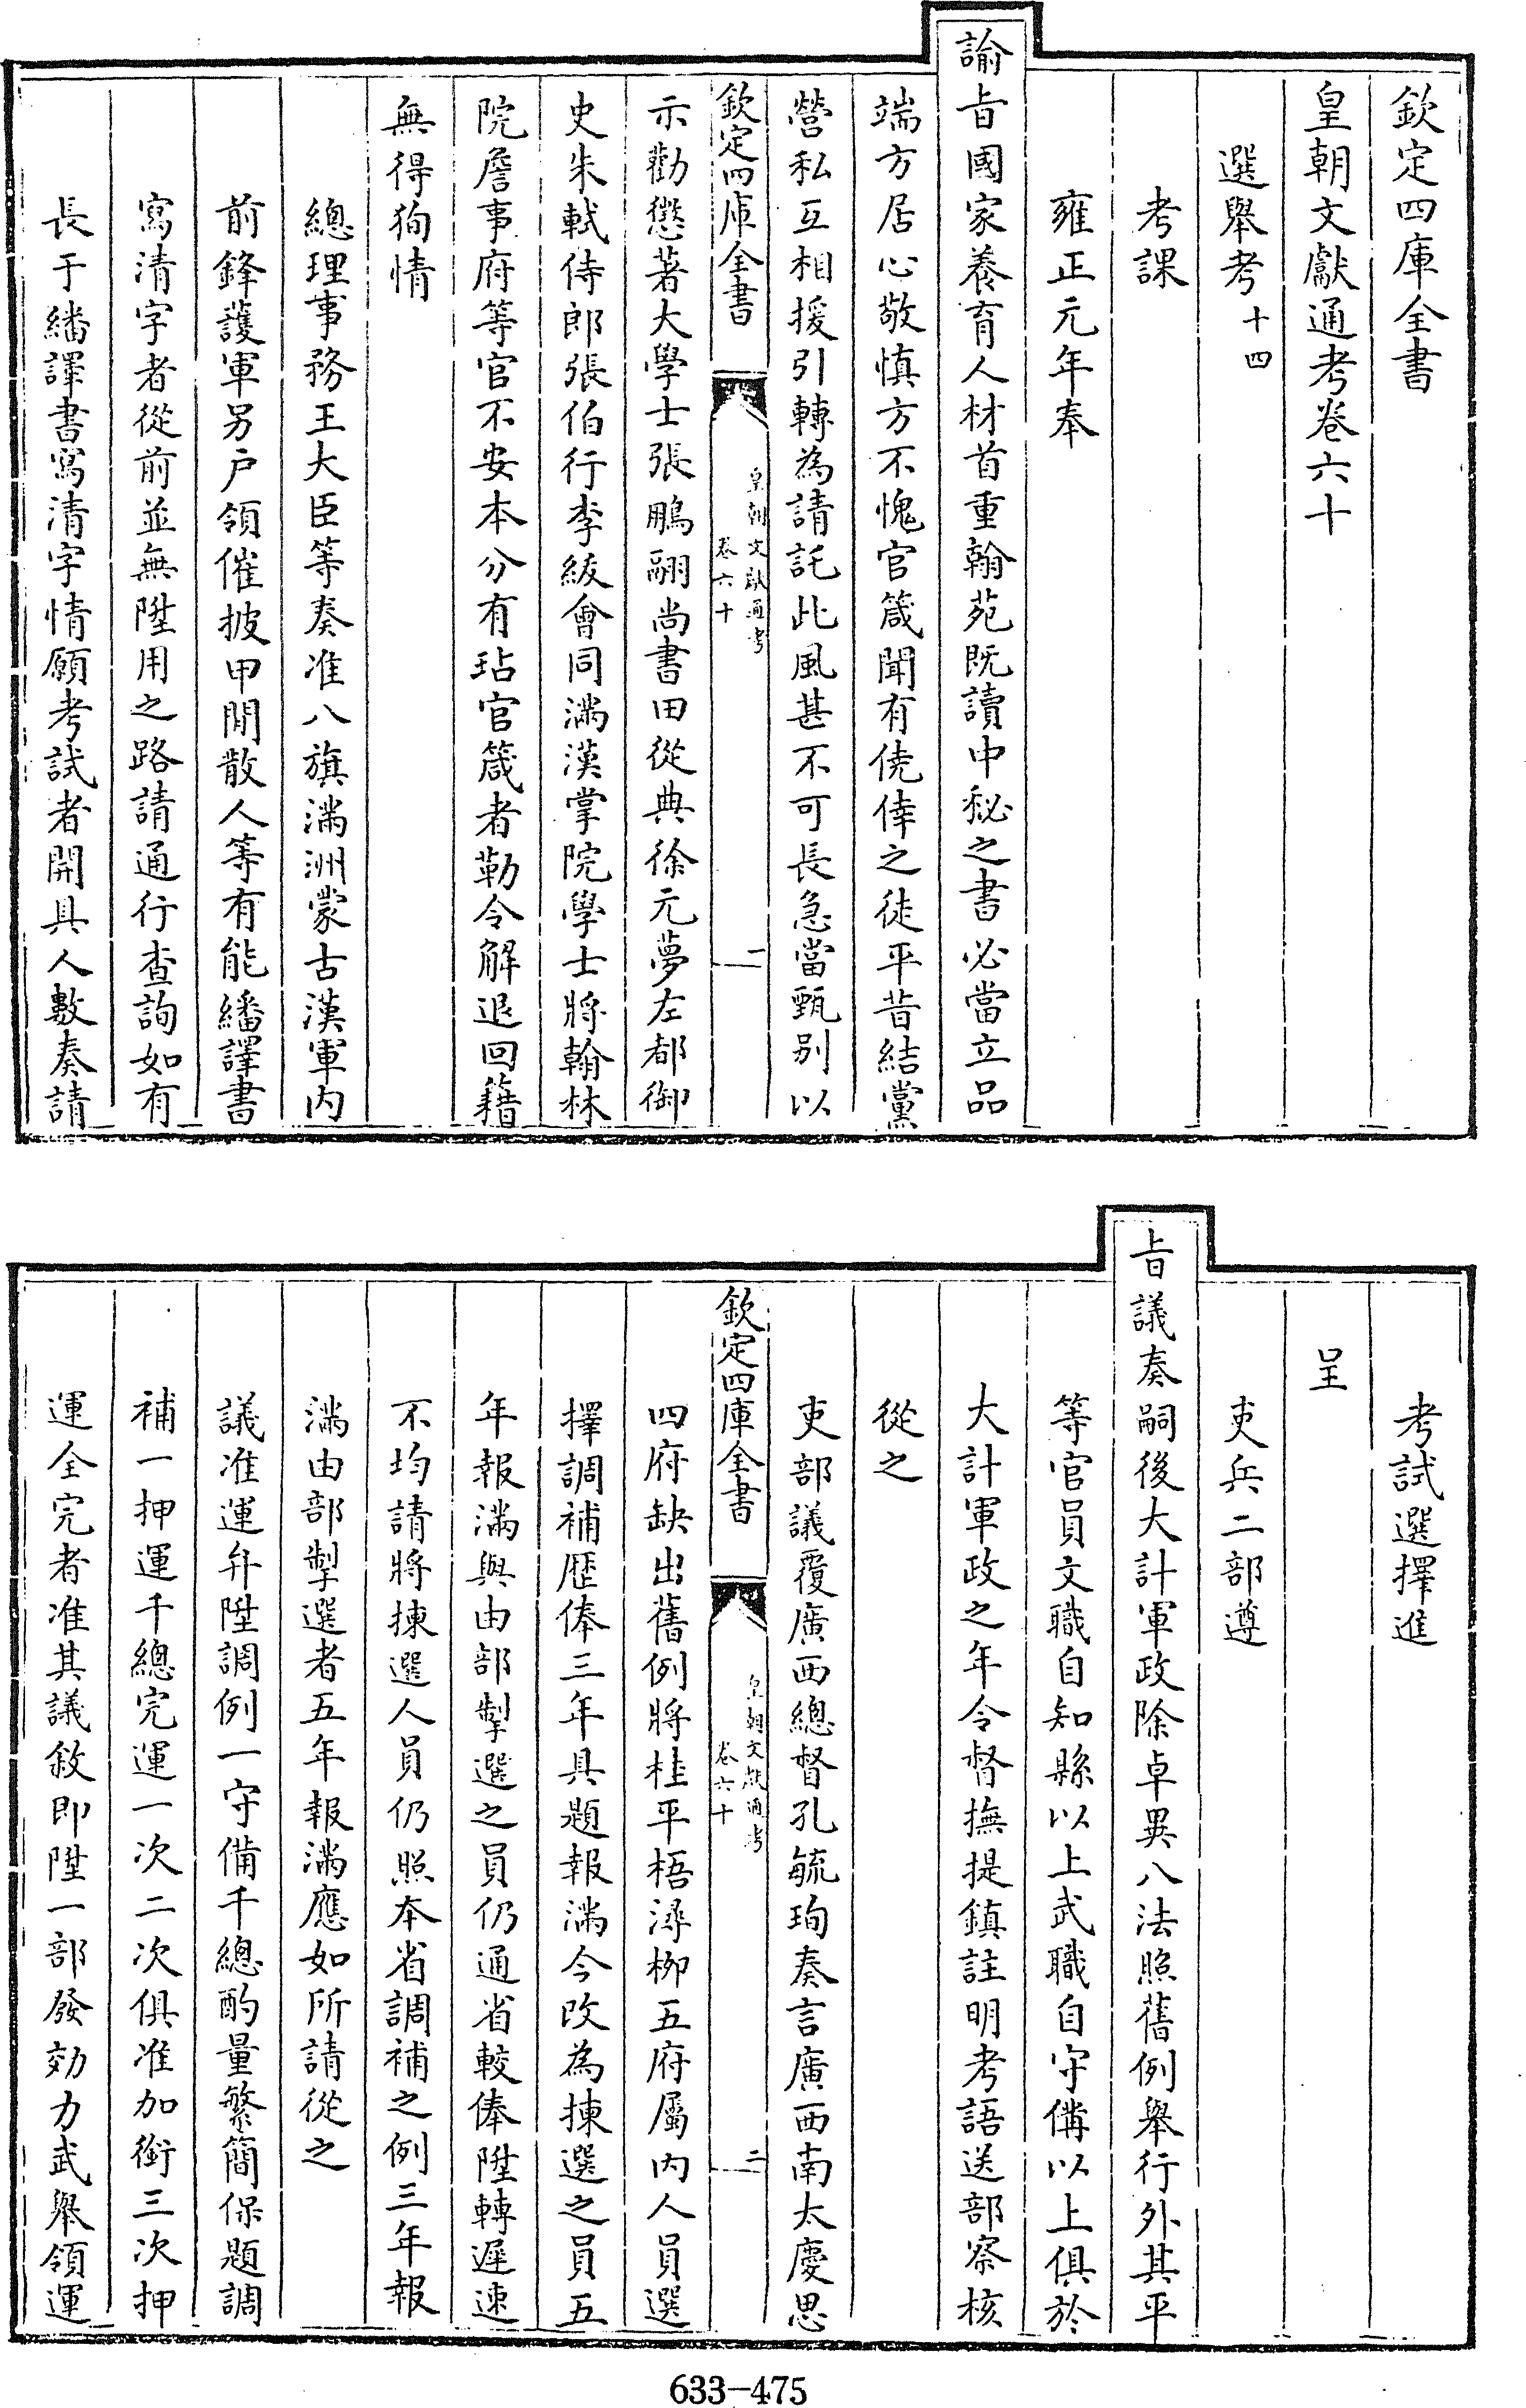 欽定四庫全書
皇朝文獻通考卷六十
選舉考十四
考課
雍正元年奉
諭旨國家養育人材首重翰苑既讀中秘之書必當立品
端方居心敬慎方不愧官箴聞有僥倖之徒平昔結黨
營私互相援引轉為請託此風甚不可長急當甄别以
欽定四庫全書
皇朝文獻通考
卷六十
一
示勸懲著大學士張鵬翮尚書田從典徐元夢左都御
史朱軾侍郎張伯行李紱會同滿漢掌院學士將翰林
院詹事府等官不安本分有玷官箴者勒令解退回籍
無得狥情
總理事務王大臣等奏准八旗滿洲蒙古漢軍内
前鋒護軍另户領催披甲閒散人等有能繙譯書
寫清字者從前並無陞用之路請通行查詢如有
長于繙譯書寫清字情願考試者開具人數奏請
考試選擇進
呈
吏兵二部遵
旨議奏嗣後大計軍政除卓異八法照舊例舉行外其平
等官員文職自知縣以上武職自守備以上俱於
大計軍政之年令督撫提鎮註明考語送部察核
從之
吏部議覆廣西總督孔毓珣奏言廣西南太慶思
欽定四庫全書
皇朝文獻通考
卷六十
二
四府缺出舊例將桂平梧潯柳五府屬内人員選
擇調補歷俸三年具題報滿今改為揀選之員五
年報滿與由部掣選之員仍通省較俸陞轉遲速
不均請將揀選人員仍照本省調補之例三年報
滿由部掣選者五年報滿應如所請從之
議准運弁陞調例一守備千總酌量繁簡保題調
補一押運千總完運一次二次俱准加銜三次押
運全完者准其議敘即陞一部發効力武舉領運
633-475